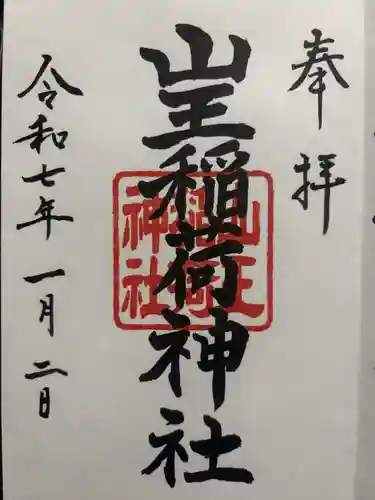 奉拝
山王稲荷神社
山王
稲荷
神社
令和七年一月二日